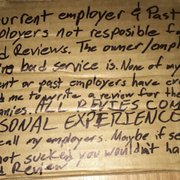 current employer & Past
ployers not resposible fo
d Reviews. The owner/empl
ng bad service is. None of my
nt or past employers have ev
d me to write a review for the
anies. ALL REVIEWS COM
RSONAL EXPERIENCE
call my employers. Maybe if se
not sucked you wouldn't ha
d Review